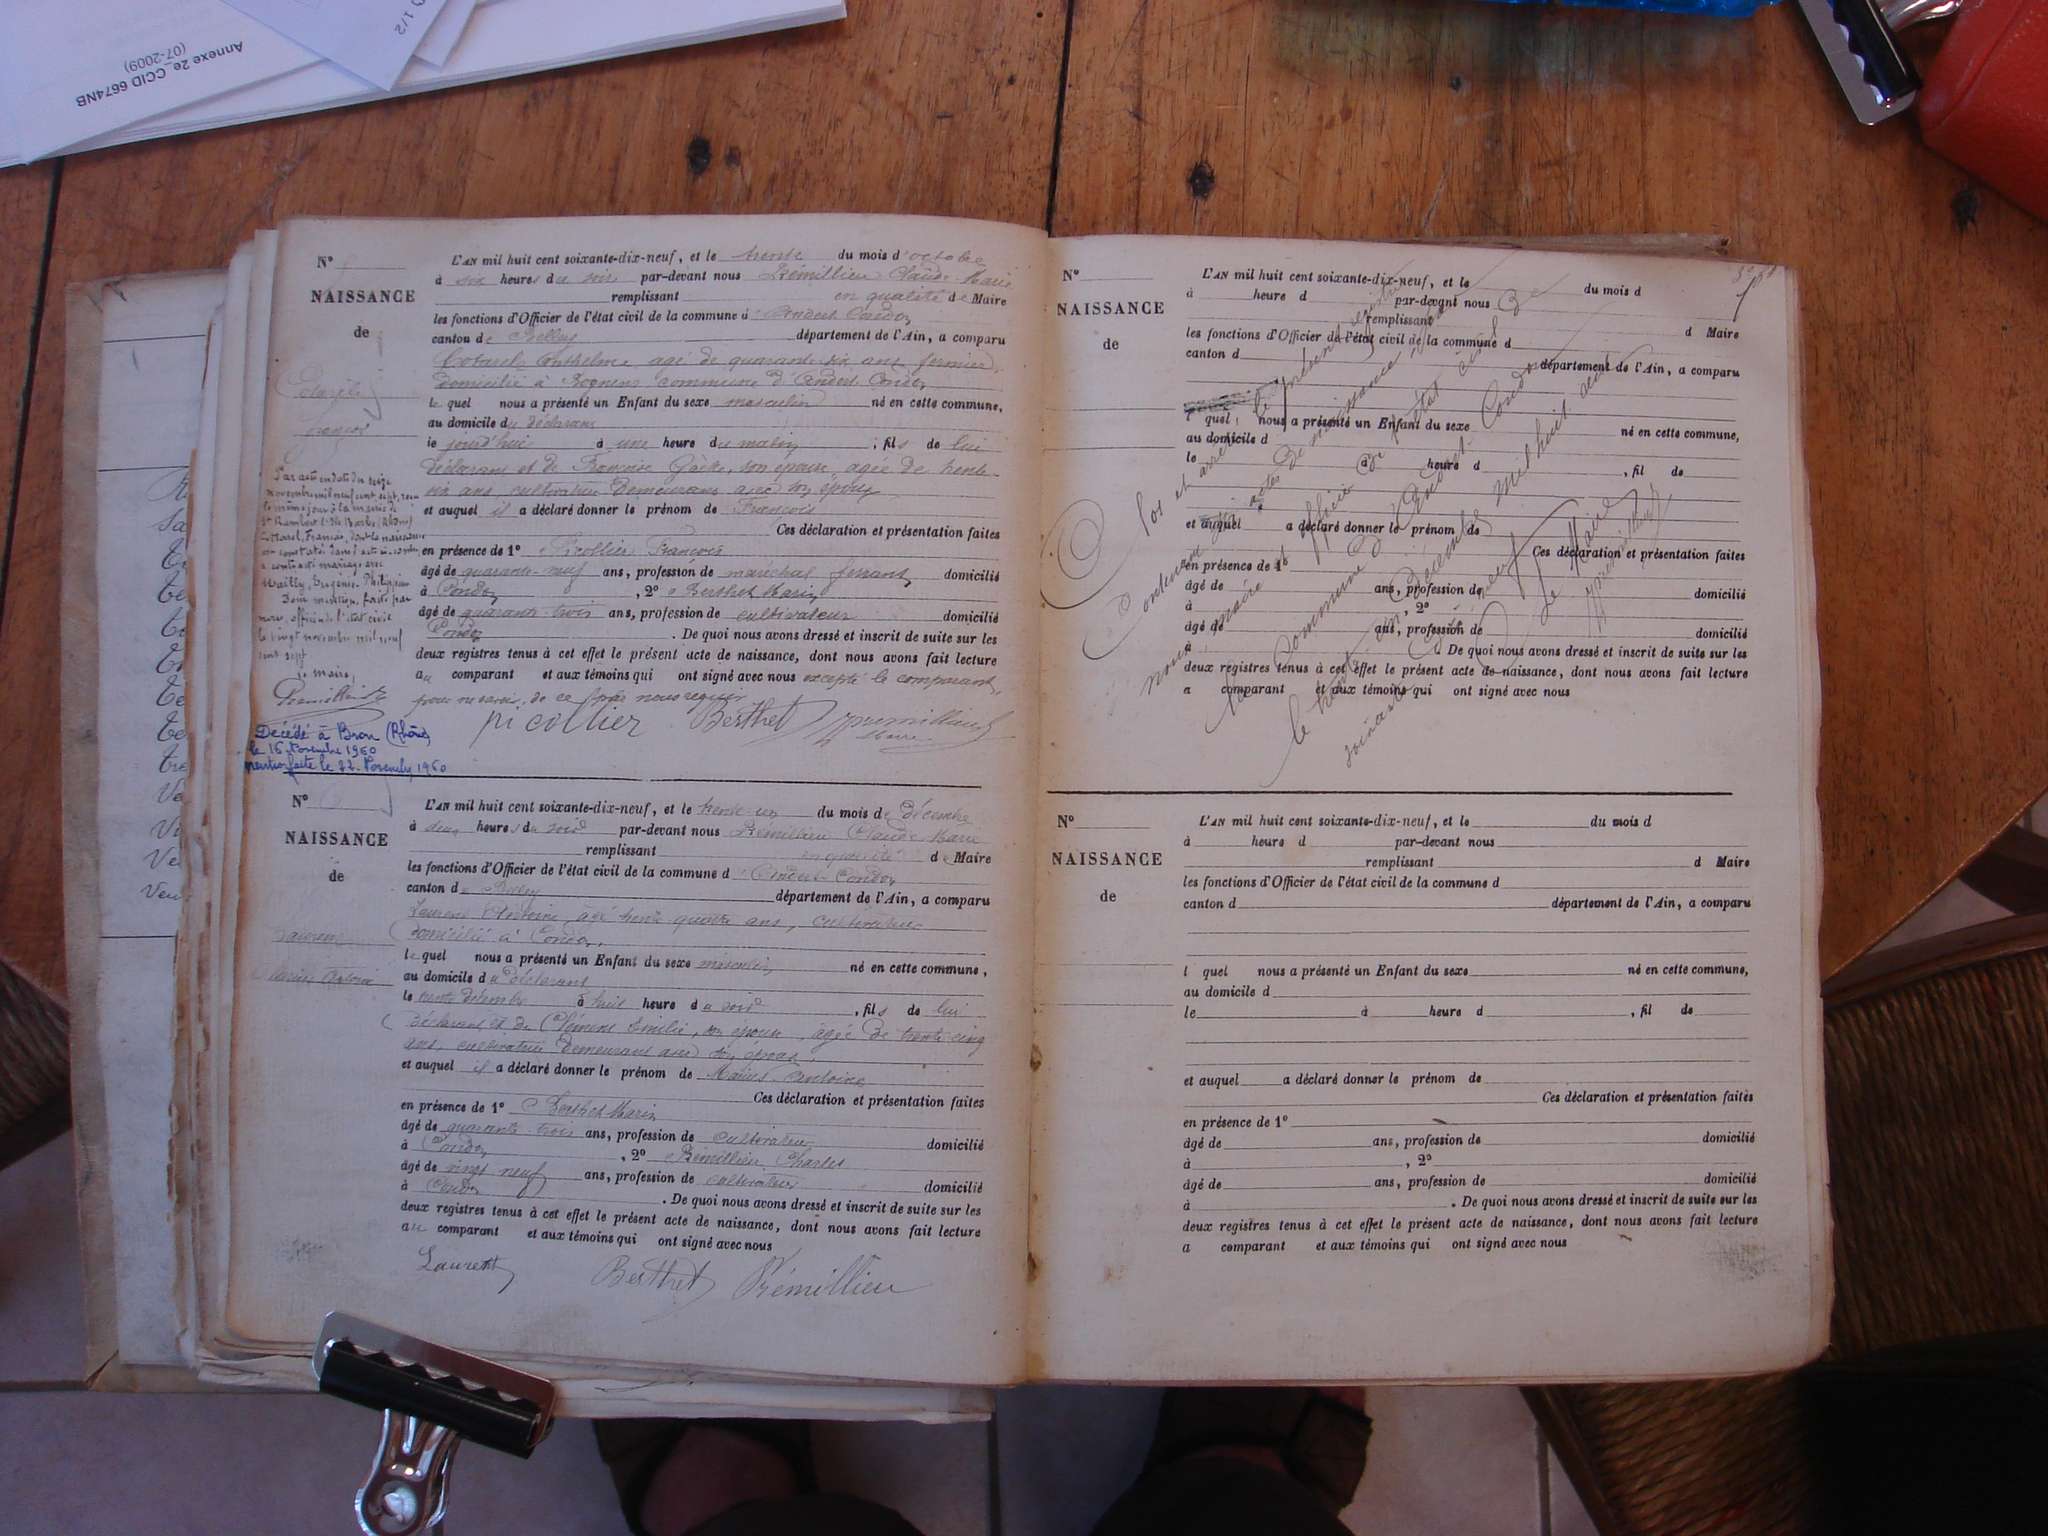 Annexe 2e_CCID 6674NB
(07-2009)
1/2
N°
NAISSANCE
de
François
L'AN mil huit cent soixante-dix-neuf, et le trente du mois d'octobre
à six heures du soir par-devant nous Prémillieu Claude Marie
remplissant en qualité de Maire
les fonctions d'Officier de l'état civil de la commune d'Andert-Condon
canton de Belley département de l'Ain, a comparu
Cottarel Anthelme agé de quarante six ans fermier,
domicilié à commune d'Andert-Condon
le quel nous a présenté un Enfant du sexe masculin né en cette commune,
au domicile du déclarant
le jourd'hui à une heure du matin, fils de lui
déclarant et de Françoise son épouse, agée de trente
six ans, cultivatrice demeurant avec son époux
et auquel il a déclaré donner le prénom de François
Ces déclaration et présentation faites
en présence de 1° Picollier François
âgé de quarante-neuf ans, profession de maréchal ferrant, domicilié
à Condon, 2° Berthet Marin
âgé de quarante trois ans, profession de cultivateur domicilié
Condon. De quoi nous avons dressé et inscrit de suite sur les
deux registres tenus à cet effet le présent acte de naissance, dont nous avons fait lecture
au comparant et aux témoins qui ont signé avec nous excepté le comparant,
pour ne savoir, de ce par nous requis
picollier Berthet Prémillieu
Maire
Par acte en date du seize
novembre mil neuf cent sept, reçu
le même jour à la mairie de
St Rambert l'Ile Barbe (Rhône)
Cottarel, François, dont la naissance
est constatée dans l'acte ci-contre
a contracté mariage avec
Mailly, Eugénie Philippine
Dont mention, faite par
nous, officier de l'état civil
le vingt novembre mil neuf
cent sept
Le maire,
Décédé à Bron (Rhône)
le 16 Novembre 1960
mention faite le 22 Novembre 1960
N°
NAISSANCE
de
Laurent
Marius Antoine
L'AN mil huit cent soixante-dix-neuf, et le trente-un du mois de Décembre
à deux heures du soir par-devant nous Prémillieu Claude Marie
remplissant en qualité de Maire
les fonctions d'Officier de l'état civil de la commune d'Andert-Condon
canton de Belley département de l'Ain, a comparu
Laurent Antoine, âgé trente quatre ans, cultivateur
domicilié à Condon,
le quel nous a présenté un Enfant du sexe masculin né en cette commune,
au domicile du déclarant
le trente décembre à huit heure du soir, fils de lui
déclarant et de Clément Emilie, son épouse, âgée de trente cinq
ans, cultivatrice demeurant avec son époux.
et auquel il a déclaré donner le prénom de Marius Antoine
Ces déclaration et présentation faites
en présence de 1° Berthet Marin
âgé de quarante trois ans, profession de cultivateur domicilié
à Condon, 2° Prémillieu Charles
âgé de vingt neuf ans, profession de cultivateur domicilié
à Condon. De quoi nous avons dressé et inscrit de suite sur les
deux registres tenus à cet effet le présent acte de naissance, dont nous avons fait lecture
au comparant et aux témoins qui ont signé avec nous
Laurent Berthet Prémillieu
N°
NAISSANCE
de
L'AN mil huit cent soixante-dix-neuf, et le du mois d
à heure d par-devant nous
remplissant d Maire
les fonctions d'Officier de l'état civil de la commune d
canton d département de l'Ain, a comparu
l quel nous a présenté un Enfant du sexe né en cette commune,
au domicile d
le à heure d , fil de
et auquel a déclaré donner le prénom de
Ces déclaration et présentation faites
en présence de 1°
âgé de ans, profession de domicilié
à , 2°
âgé de ans, profession de domicilié
à De quoi nous avons dressé et inscrit de suite sur les
deux registres tenus à cet effet le présent acte de naissance, dont nous avons fait lecture
a comparant et aux témoins qui ont signé avec nous
Clos et arrêté le présent registre
Contenant actes de naissance
nous maire officier de l'état civil
commune d'Andert-Condon
le trente un Décembre mil huit cent
soixante dix neuf
Le Maire
Prémillieu
N°
NAISSANCE
de
L'AN mil huit cent soixante-dix-neuf, et le du mois d
à heure d par-devant nous
remplissant d Maire
les fonctions d'Officier de l'état civil de la commune d
canton d département de l'Ain, a comparu
l quel nous a présenté un Enfant du sexe né en cette commune,
au domicile d
le à heure d , fil de
et auquel a déclaré donner le prénom de
Ces déclaration et présentation faites
en présence de 1°
âgé de ans, profession de domicilié
à , 2°
âgé de ans, profession de domicilié
à . De quoi nous avons dressé et inscrit de suite sur les
deux registres tenus à cet effet le présent acte de naissance, dont nous avons fait lecture
a comparant et aux témoins qui ont signé avec nous